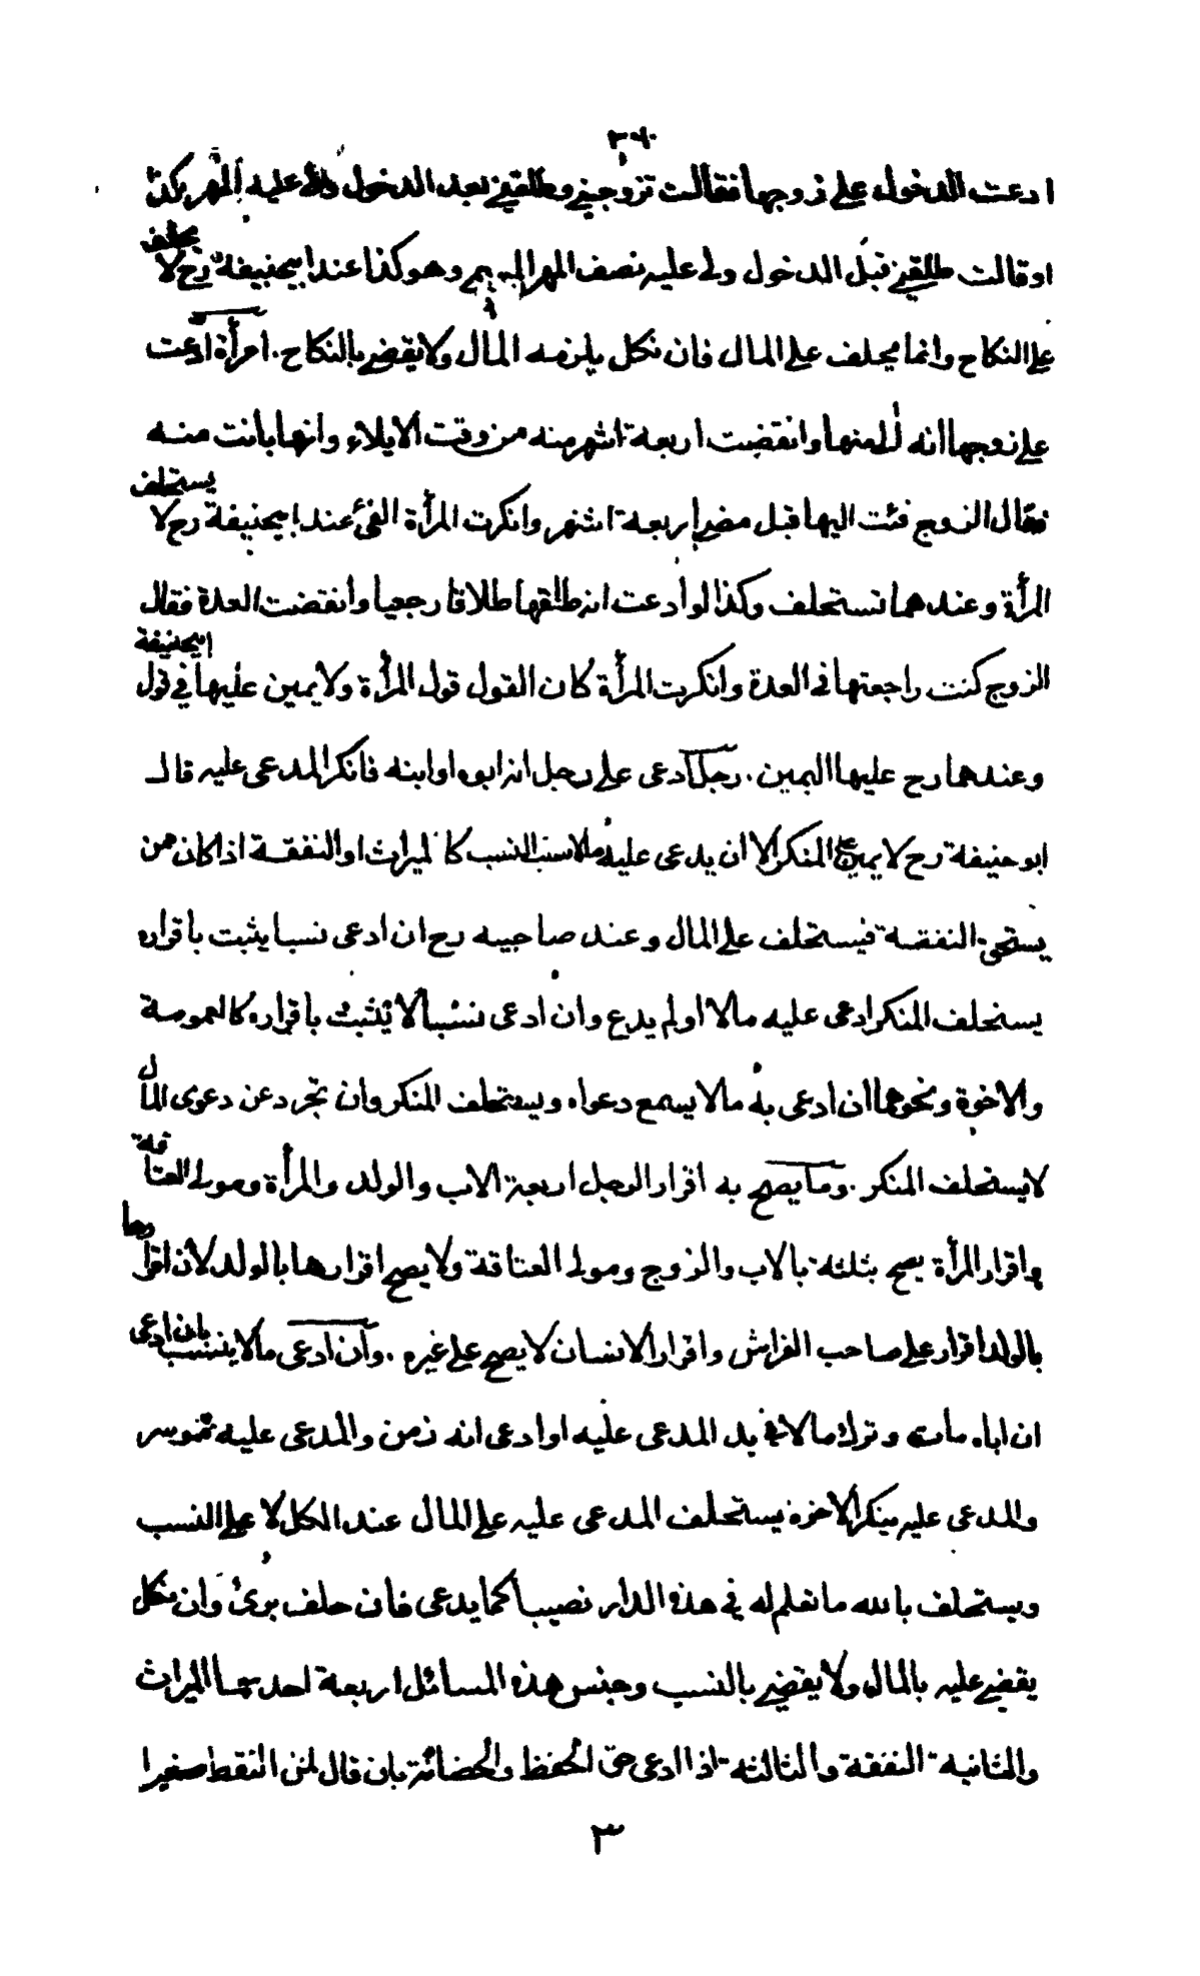 ٣٦٠
ادعت الدخول على زوجها فقالت تزوجني وطلقني بعد الدخول ولي عليه المهر بكذا
او قالت طلقني قبل الدخول ولي عليه نصف المهر وهو كذا عند ابيحنيفة رح لا يحلف
على النكاح وانما يحلف على المال فان نكل يلزمه المال ولا يقضي بالنكاح . امرأة ادعت
على زوجها انه آلى منها وانقضت اربعة اشهر منه من وقت الايلاء وانها بانت منه
فقال الزوج فئت اليها قبل مضي اربعة اشهر وانكرت المرأة الفئ عند ابيحنيفة رح لا يستحلف
المرأة وعندهما تستحلف وكذا لو ادعت انه طلقها طلاقا رجعيا وانقضت العدة فقال
الزوج كنت راجعتها في العدة وانكرت المرأة كان القول قول المرأة ولا يمين عليها في قول ابيحنيفة
وعندهما رح عليها اليمين . رجل ادعى على رجل انه ابوه او ابنه فانكر المدعى عليه قال
ابو حنيفة رح لا يمين على المنكر الا ان يدعى عليه مالا بسبب النسب كالميراث او النفقة اذا كان ممن
يستحق النفقة فيستحلف على المال وعند صاحبيه رح ان ادعى نسبا يثبت باقراره
يستحلف المنكر ادعى عليه مالا او لم يدع وان ادعى نسبا لا يثبت باقراره كالعمومة
والاخوة ونحوهما ان ادعى به مالا يسمع دعواه ويستحلف المنكر وان تجرد عن دعوى المال
لا يستحلف المنكر . وما يصح به اقرار الرجل اربعة الاب والولد والمرأة ومولى العتاقة
واقرار المرأة يصح بثلثة بالاب والزوج ومولى العتاقة ولا يصح اقرارها بالولد لان اقرارها
بالولد اقرار على صاحب الفراش واقرار الانسان لا يصح على غيره . وان ادعى مالا بنسب بان ادعى
ان اباه مات وترك مالا في يد المدعى عليه او ادعى انه زمن والمدعى عليه موسر
والمدعى عليه منكر الاخوة يستحلف المدعى عليه على المال عند الكل لا على النسب
ويستحلف بالله ما تعلم له في هذه الدار نصيبا كما يدعى فان حلف برئ وان نكل
يقضي عليه بالمال ولا يقضي بالنسب وجنس هذه المسائل اربعة احديها الميراث
والثانية النفقة والثالثة اذا ادعى حق الحفظ والحضانة بان قال لمن التقط صغيرا
٣